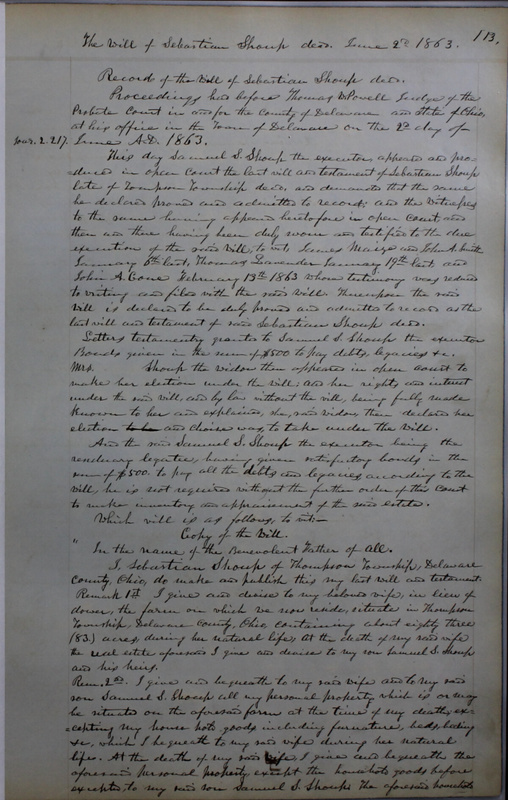 113.
The Will of Sebastian Shoup decd. June 2d 1863.
Record of the Will of Sebastian Shoup decd.
Proceedings had before Thomas W Powell Judge of the
Probate Court in and for the County of Delaware and State of Ohio,
at his office in the Town of Delaware on the 2d day of
Jour. 2. 217. June A.D. 1863.
This day Samuel S. Shoup the executor appeared and pro-
-duced in open Court the last will and testament of Sebastian Shoup
late of Thompson Township decd. and demanded that the same
be declared proved and admitted to record; and the witnesses
to the same having appeared heretofore in open Court and
then and there having been duly sworn and testified to the due
execution of the said Will, to wit, James Maize and John A.
January 6th last, Thomas Lavender January 19th last and
John A. Cone February 13th 1863 whose testimony was reduced
to writing and filed with the said Will. Thereupon the said
Will is declared to be duly proved and admitted to record as the
last will and testament of said Sebastian Shoup decd.
Letters testamentary granted to Samuel S. Shoup the executor
Bonds given in the sum of $500 to pay debts, legacies &c.
Mrs. Shoup the widow then appeared in open court to
make her election under the will: and her rights and interest
under the said will, and by law without the will, being fully made
known to her and explained, she, said widow, then declared her
election to be and choice was, to take under the Will.
And the said Samuel S. Shoup the executor being the
residuary legatee, having given satisfactory bonds in the
sum of $500. to pay all the debts and legacies according to the
will, he is not required without the further order of this Court
to make inventory and appraisement of the said estate.
Which will is as follows, to wit:—
Copy of the Will.
" In the name of the Benevolent Father of all.
I, Sebastian Shoup of Thompson Township, Delaware
County, Ohio, do make and publish this my last will and testament.
Remark 1st I give and devise to my beloved wife, in lieu of
dower, the farm on which we now reside, situate in Thompson
Township, Delaware County, Ohio containing about eighty three
(83.) acres, during her natural life, At the death of my said wife
the real estate aforesaid I give and devise to my son Samuel S. Shoup
and his heirs.
Rem. 2d. I give and bequeath to my said wife and to my said
son Samuel S. Shoup all my personal property which is or may
be situate on the aforesaid farm at the time of my death, ex-
-cepting my house hold goods including furnature, beds, beding
&c, which I bequeath to my said wife during her natural
life. At the death of my said wife, I give and bequeath the
aforesaid personal property except the household goods before
excepted to my said son Samuel S. Shoup the aforesaid household